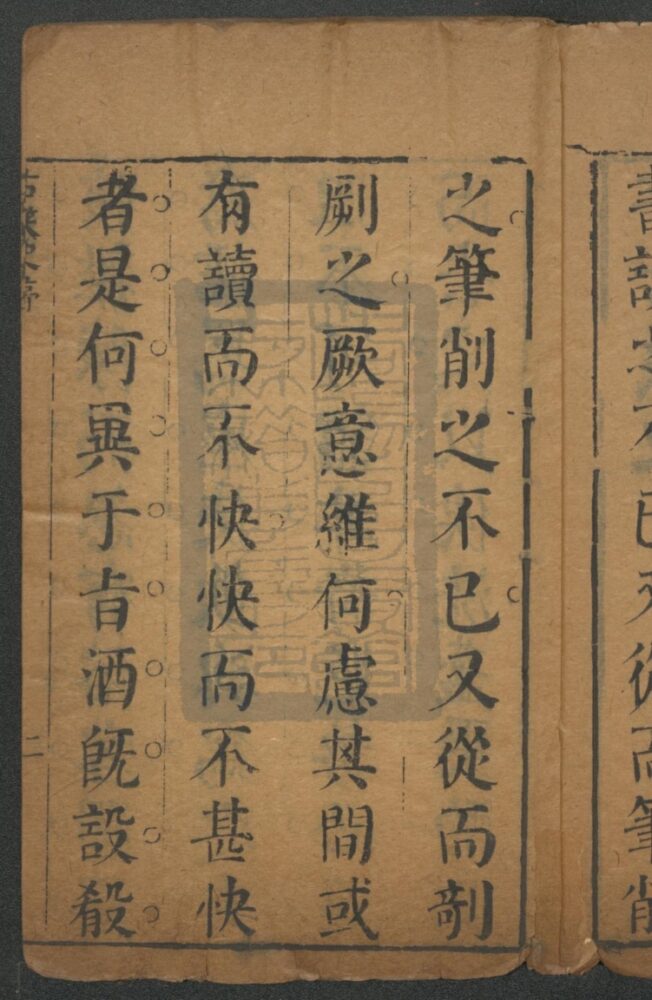 書讀之不已又從而筆削
之筆削之不已又從而剞
劂之厥意維何慮其間或
有讀而不快快而不甚快
者是何異于旨酒旣設殽
二